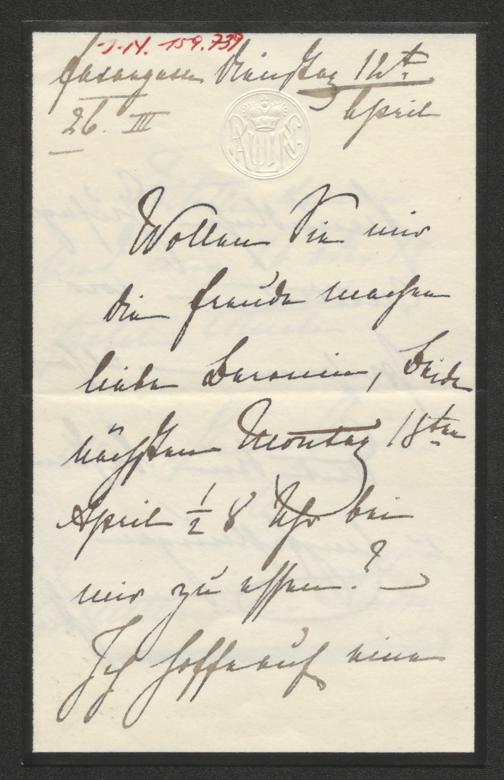 I.N. 159.739
Fasangasse Dienstag 12t
26. III April
Wollen Sie mir
die Freude machen
liebe Baronin, beide
nächsten Montag 18ten
April ½ 8 Uhr bei
mir zu essen? –
Ich hoffe auf eine